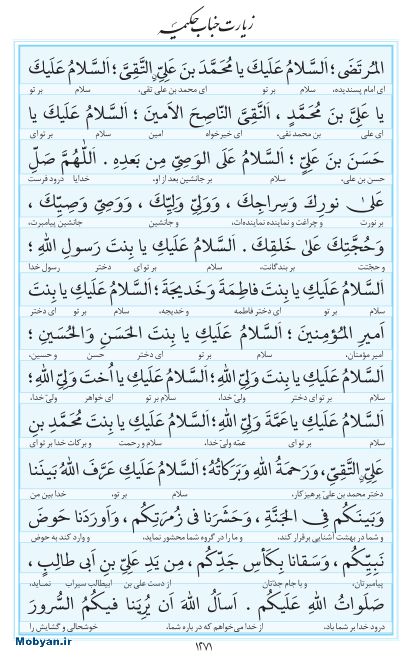 زیارت جناب حکیمیّه
المُرتَضَی؛ اَلسَّلامُ عَلَیكَ یا مُحَمَّدَ بنَ عَلِیٍّ التَّقِیَّ؛ اَلسَّلامُ عَلَیكَ
ای امام پسندیده، سلام بر تو ای محمد بن علی تقی، سلام بر تو
یا عَلِیَّ بنَ مُحَمَّدٍ ، اَلنَّقِیَّ النّاصِحَ الاَمینَ ؛ اَلسَّلامُ عَلَیكَ یا
ای علی بن محمد نقی، ای خیرخواه امین سلام بر تو ای
حَسَنَ بنَ عَلِیٍّ ؛ اَلسَّلامُ عَلَی الوَصِیِّ مِن بَعدِهِ . اَللّٰهُمَّ صَلِّ
حسن بن علی، سلام بر جانشین بعد از او، خدایا درود فرست
عَلیٰ نورِكَ وَسِراجِكَ ، وَوَلِیِّ وَلِیِّكَ ، وَوَصِیِّ وَصِیِّكَ ،
بر نورت و چراغت و نماینده نماینده‌ات، و جانشین جانشین پیامبرت،
وَحُجَّتِكَ عَلیٰ خَلقِكَ . اَلسَّلامُ عَلَیكِ یا بِنتَ رَسولِ اللهِ ؛
و حجتت بر بندگانت، سلام بر تو ای دختر رسول خدا
اَلسَّلامُ عَلَیكِ یا بِنتَ فاطِمَةَ وَخَدیجَةَ؛ اَلسَّلامُ عَلَیكِ یا بِنتَ
سلام بر تو ای دختر فاطمه و خدیجه، سلام بر تو ای دختر
اَمیرِ المُؤمِنینَ ؛ اَلسَّلامُ عَلَیكِ یا بِنتَ الحَسَنِ وَالحُسَینِ ؛
امیر مؤمنان، سلام بر تو ای دختر حسن و حسین،
اَلسَّلامُ عَلَیكِ یا بِنتَ وَلِیِّ اللهِ؛ اَلسَّلامُ عَلَیكِ یا اُختَ وَلِیِّ اللهِ؛
سلام بر تو ای دختر ولیّ خدا، سلام بر تو ای خواهر ولیّ خدا،
اَلسَّلامُ عَلَیكِ یا عَمَّةَ وَلِیِّ اللهِ؛ اَلسَّلامُ عَلَیكِ یا بِنتَ مُحَمَّدِ بنِ
سلام بر تو ای عمّه ولیّ خدا، سلام و رحمت و برکات خدا بر تو ای
عَلِیٍّ التَّقِیِّ، وَرَحمَةُ اللهِ وَبَرَکاتُهُ؛ اَلسَّلامُ عَلَیكِ عَرَّفَ اللهُ بَینَنا
دختر محمد بن علیّ پرهیزکار، سلام بر تو، خدا بین من
وَبَینَکُم فِی الجَنَّةِ ، وَحَشَرَنا فی زُمرَتِکُم ، وَاَورَدَنا حَوضَ
و شما در بهشت آشنایی برقرار کند، و ما را در گروه شما محشور نماید، و وارد کند به حوض
نَبِیِّکُم ، وَسَقانا بِکَأسِ جَدِّکُم ، مِن یَدِ عَلِیِّ بنِ اَبی طالِبٍ ،
پیامبرتان، و با جام جدّتان از دست علی بن ابیطالب سیراب نماید،
صَلَواتُ اللهِ عَلَیکُم . اَسأَلُ اللهَ اَن یُرِیَنا فیکُمُ السُّرورَ
درود خدا بر شما باد، از خدا می‌خواهم که در باره شما، خوشحالی و گشایش را
Mobyan.ir
۱۲۷۱